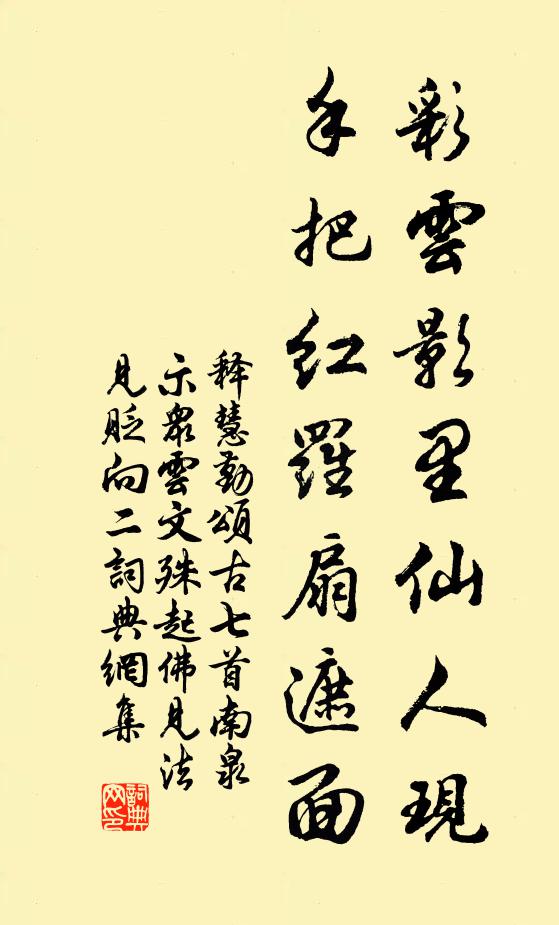 彩雲影里仙人現
手把紅羅扇遮面
释慧勤頌古七首南泉
示眾雲文殊起佛見法
見貶向二詞典網集
詞典網印